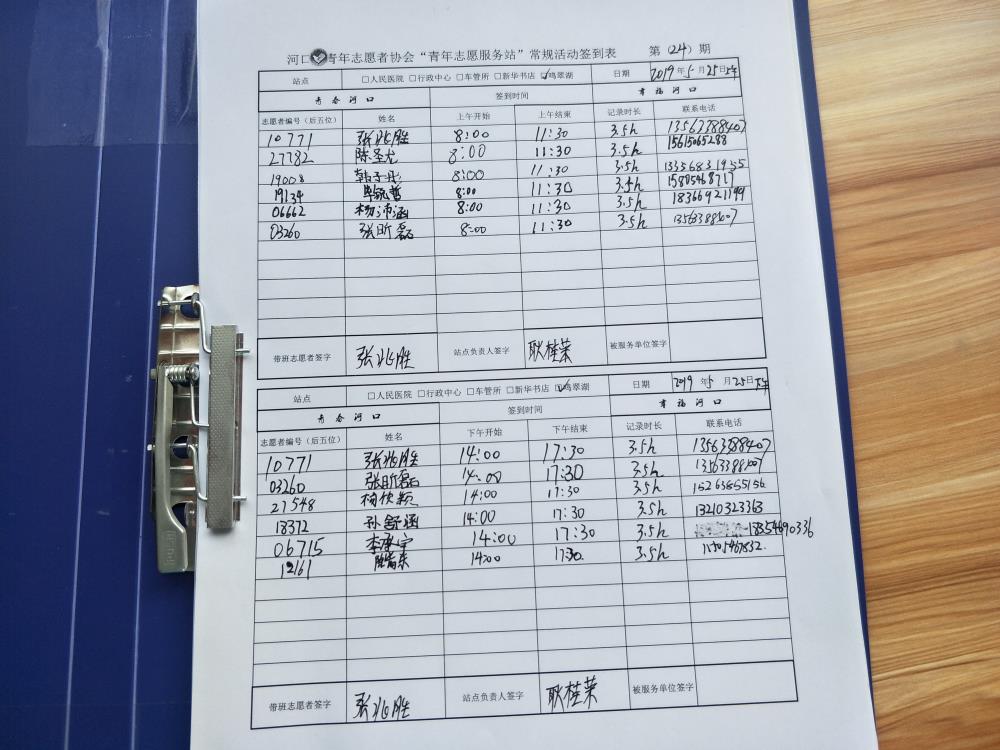 河口青年志愿者协会“青年志愿服务站”常规活动签到表 第（24）期
站点 □人民医院 □行政中心 □车管所 □新华书店 ☑鸣翠湖 日期 2019年5月25日上午
青春河口 签到时间 幸福河口
志愿者编号（后五位） 姓名 上午开始 上午结束 记录时长 联系电话
10771 张兆胜 8:00 11:30 3.5h 13563388407
27782 陈圣龙 8:00 11:30 3.5h 15615065288
19008 韩子彤 8:00 11:30 3.5h 13356831955
19134 8:00 11:30 3.5h 15805468717
06662 杨沛涵 8:00 11:30 3.5h 18366921199
03260 张昕磊 8:00 11:30 3.5h
带班志愿者签字 张兆胜 站点负责人签字 耿桂荣 被服务单位签字
站点 □人民医院 □行政中心 □车管所 □新华书店 ☑鸣翠湖 日期 2019年5月25日下午
青春河口 签到时间 幸福河口
志愿者编号（后五位） 姓名 下午开始 下午结束 记录时长 联系电话
10771 张兆胜 14:00 17:30 3.5h 13563388407
03260 张昕磊 14:00 17:30 3.5h
27548 14:00 17:30 3.5h
18372 孙舒涵 14:00 17:30 3.5h 13210323363
06715 李承宇 14:00 17:30 3.5h 18354690336
12161 14:00 17:30 3.5h
带班志愿者签字 张兆胜 站点负责人签字 耿桂荣 被服务单位签字